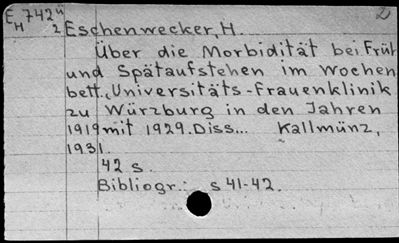 E, 742ü 2
H 2 Eschenwecker, H.
Über die Morbidität bei Früh
und Spätaufstehen im Wochen
bett., Universitäts-Frauenklinik
zu Würzburg in den Jahren
1919 mit 1929. Diss... Kallmünz,
1931.
42 s.
Bibliogr.: s 41-42.